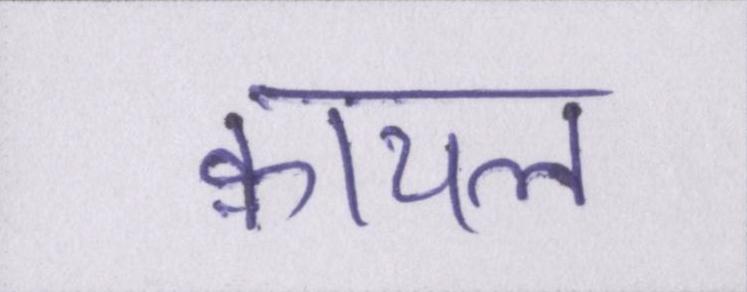 क़ायल